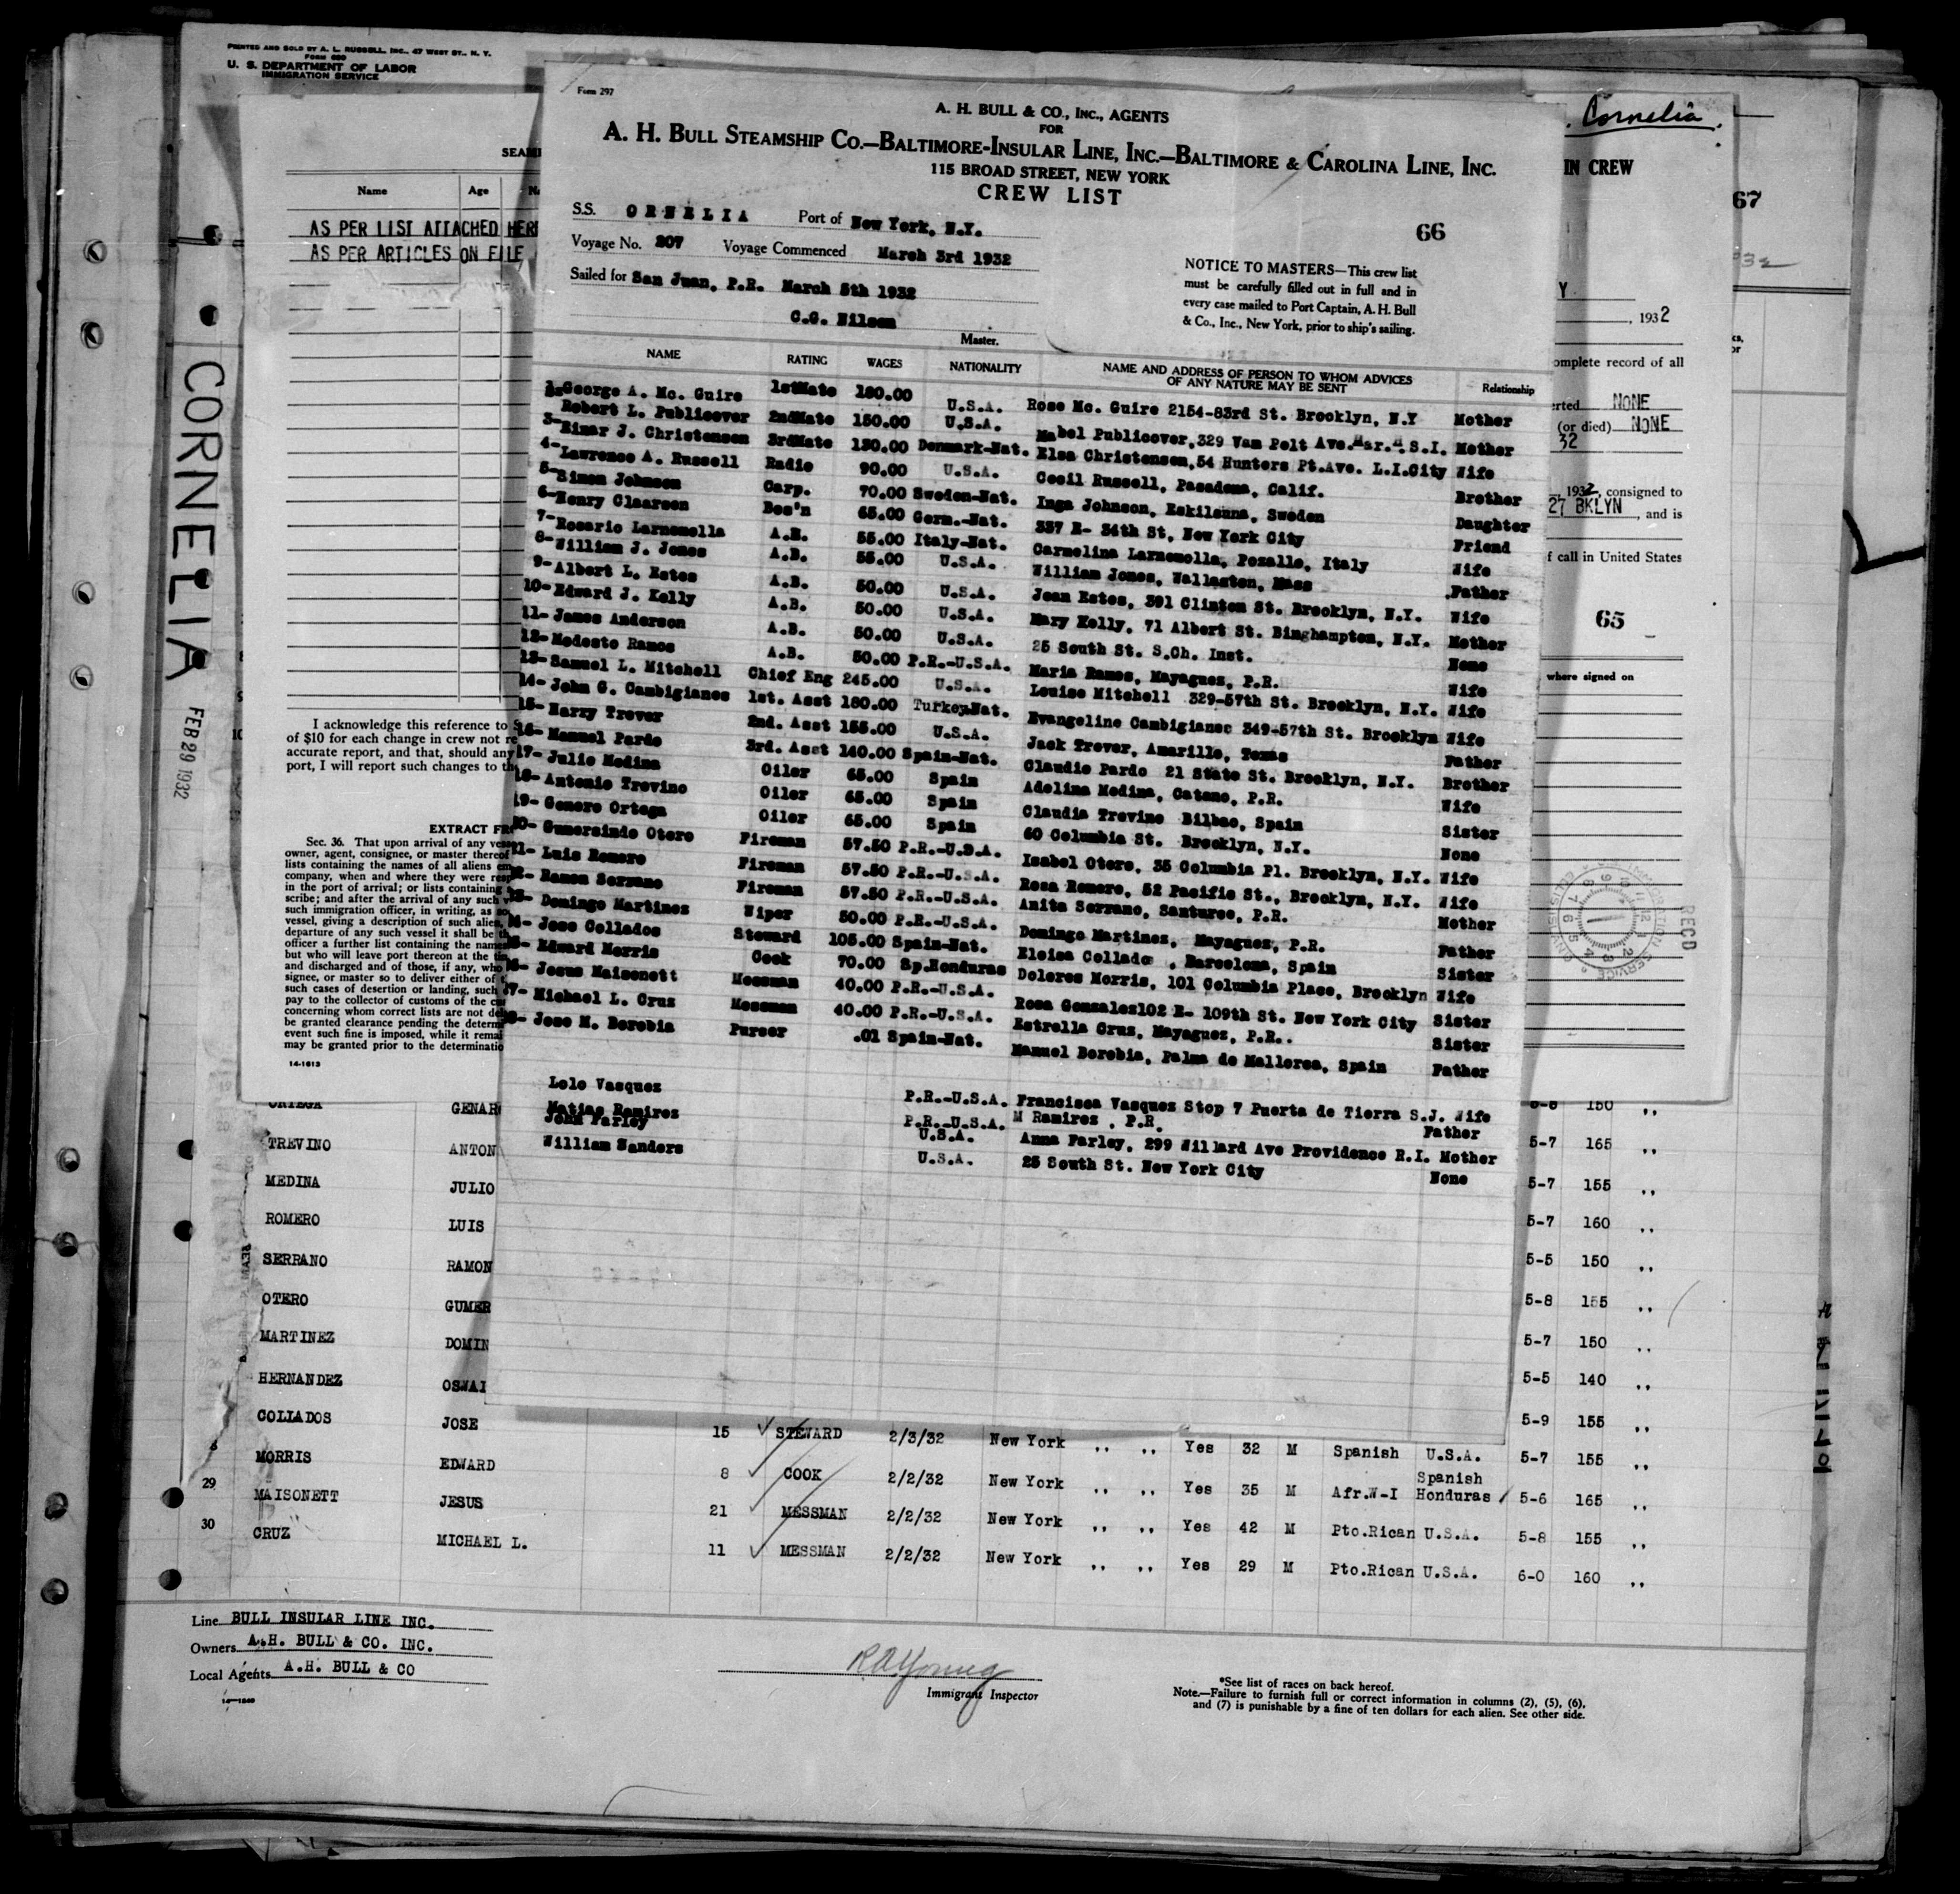 PRINTED AND SOLD BY A. L. RUSSELL, INC., 47 WEST ST., N. Y.
Form 680
U. S. DEPARTMENT OF LABOR
IMMIGRATION SERVICE
CORNELIA
FEB 29 1932
Name Age
AS PER LIST ATTACHED HER
AS PER ARTICLES ON FILE
I acknowledge this reference to
of $10 for each change in crew not re
accurate report, and that, should any
port, I will report such changes to th
EXTRACT FR
Sec. 36. That upon arrival of any ves
owner, agent, consignee, or master thereof
lists containing the names of all aliens em
company, when and where they were resp
in the port of arrival; or lists containing
scribe; and after the arrival of any such
such immigration officer, in writing, as so
vessel, giving a description of such alien,
departure of any such vessel it shall be th
officer a further list containing the names
but who will leave port thereon at the tim
and discharged and of those, if any, who
signee, or master so to deliver either of
such cases of desertion or landing, such
pay to the collector of customs of the cus
concerning whom correct lists are not de
be granted clearance pending the determ
event such fine is imposed, while it remai
may be granted prior to the determinatio
14-1613
Form 297
A. H. BULL & CO., INC., AGENTS
FOR
A. H. BULL STEAMSHIP CO.—BALTIMORE-INSULAR LINE, INC.—BALTIMORE & CAROLINA LINE, INC.
115 BROAD STREET, NEW YORK
CREW LIST
66
S.S. ORNELIA Port of New York, N.Y.
Voyage No. 207 Voyage Commenced March 3rd 1932
Sailed for San Juan, P.R. March 5th 1932
C.G. Nilsen
Master.
NOTICE TO MASTERS—This crew list
must be carefully filled out in full and in
every case mailed to Port Captain, A. H. Bull
& Co., Inc., New York, prior to ship's sailing.
NAME RATING WAGES NATIONALITY NAME AND ADDRESS OF PERSON TO WHOM ADVICES OF ANY NATURE MAY BE SENT Relationship
1-George A. Mc. Guire 1stMate 180.00 U.S.A. Rose Mc. Guire 2154-83rd St. Brooklyn, N.Y Mother
Robert L. Publicover 2ndMate 150.00 U.S.A. Mabel Publicover,329 Van Pelt Ave."ar." S.I. Mother
3-Einar J. Christensen 3rdMate 130.00 Denmark-Nat. Elsa Christensen,54 Hunters Pt.Ave. L.I.City Wife
4-Lawrence A. Russell Radio 90.00 U.S.A. Cecil Russell, Pasadena, Calif. Brother
5-Simon Johnson Carp. 70.00 Sweden-Nat. Inga Johnson, Eskilsuna, Sweden Daughter
6-Henry Claarsen Bos'n 65.00 Germ.-Nat. 337 E- 34th St, New York City Friend
7-Rosario Larnemolla A.B. 55.00 Italy-Nat. Carmelina Larnemolla, Pozallo, Italy Wife
8-William J. Jones A.B. 55.00 U.S.A. William Jones, Wallaston, Mass Father
9-Albert L. Estes A.B. 50.00 U.S.A. Jean Estes, 391 Clinton St. Brooklyn, N.Y. Wife
10-Edward J. Kelly A.B. 50.00 U.S.A. Mary Kelly, 71 Albert St. Binghampton, N.Y. Mother
11-James Anderson A.B. 50.00 U.S.A. 25 South St. S.Ch. Inst. None
12-Modesto Ramos A.B. 50.00 P.R.-U.S.A. Maria Ramos, Mayaguez, P.R. Wife
13-Samuel L. Mitchell Chief Eng 245.00 U.S.A. Louise Mitchell 329-57th St. Brooklyn, N.Y. Wife
14-John G. Cambigianos 1st. Asst 180.00 Turkey-Nat. Evangeline Cambigianos 349-57th St. Brooklyn Wife
15-Harry Trever 2nd. Asst 155.00 U.S.A. Jack Trever, Amarillo, Texas Father
16-Manuel Pardo 3rd. Asst 140.00 Spain-Nat. Claudio Pardo 21 State St. Brooklyn, N.Y. Brother
17-Julio Medina Oiler 65.00 Spain Adelina Medina, Catano, P.R. Wife
18-Antonio Trevino Oiler 65.00 Spain Claudia Trevino Bilbao, Spain Sister
19-Genero Ortega Oiler 65.00 Spain 60 Columbia St. Brooklyn, N.Y. None
20-Gumersindo Otero Fireman 57.50 P.R.-U.S.A. Isabel Otero, 35 Columbia Pl. Brooklyn, N.Y. Wife
21-Luis Romero Fireman 57.50 P.R.-U.S.A. Rosa Romero, 52 Pacific St., Brooklyn, N.Y. Wife
22-Ramon Serrano Fireman 57.50 P.R.-U.S.A. Anita Serrano, Santurce, P.R. Mother
23-Domingo Martinez Wiper 50.00 P.R.-U.S.A. Domingo Martinez, Mayaguez, P.R. Father
24-Jose Collados Steward 105.00 Spain-Nat. Eloisa Collado , Barcelona, Spain Sister
25-Edward Morris Cook 70.00 Sp.Honduras Dolores Morris, 101 Columbia Place, Brooklyn Wife
26-Jesus Maisonett Messman 40.00 P.R.-U.S.A. Rosa Gonzales102 E- 109th St. New York City Sister
27-Michael L. Cruz Messman 40.00 P.R.-U.S.A. Estrella Cruz, Mayaguez, P.R.. Sister
28-Jose M. Berobia Purser .01 Spain-Nat. Manuel Berobia, Palma de Mallorca, Spain Father
Lolo Vasquez P.R.-U.S.A. Francisca Vasquez Stop 7 Puerta de Tierra S.J. Wife
Matias Ramirez P.R.-U.S.A. M Ramirez , P.R. Father
John Farley U.S.A. Anna Farley, 299 Willard Ave Providence R.I. Mother
William Sanders U.S.A. 25 South St. New York City None
Cornelia
IN CREW
67
Y
, 1932
omplete record of all
erted NONE
(or died) NONE
32
, 1932, consigned to
27 BKLYN , and is
f call in United States
65
where signed on
RECD
ORTEGA GENAR 5-6 150 ,,
TREVINO ANTON 5-7 165 ,,
MEDINA JULIO 5-7 155 ,,
ROMERO LUIS 5-7 160 ,,
SERRANO RAMON 5-5 150 ,,
OTERO GUMER 5-8 155 ,,
MARTINEZ DOMIN 5-7 150 ,,
HERNANDEZ OSWAI 5-5 140 ,,
COLLADOS JOSE 15 STEWARD 2/3/32 New York ,, ,, Yes 32 M Spanish U.S.A. 5-9 155 ,,
MORRIS EDWARD 8 COOK 2/2/32 New York ,, ,, Yes 35 M Afr.W-I Spanish Honduras 5-7 155 ,,
29 MAISONETT JESUS 21 MESSMAN 2/2/32 New York ,, ,, Yes 42 M Pto.Rican U.S.A. 5-6 165 ,,
30 CRUZ MICHAEL L. 11 MESSMAN 2/2/32 New York ,, ,, Yes 29 M Pto.Rican U.S.A. 5-8 155 ,,
6-0 160 ,,
Line BULL INSULAR LINE INC.
Owners A.H. BULL & CO. INC.
Local Agents A.H. BULL & CO
14—1240
RAYoung
Immigrant Inspector
*See list of races on back hereof.
Note.—Failure to furnish full or correct information in columns (2), (5), (6),
and (7) is punishable by a fine of ten dollars for each alien. See other side.